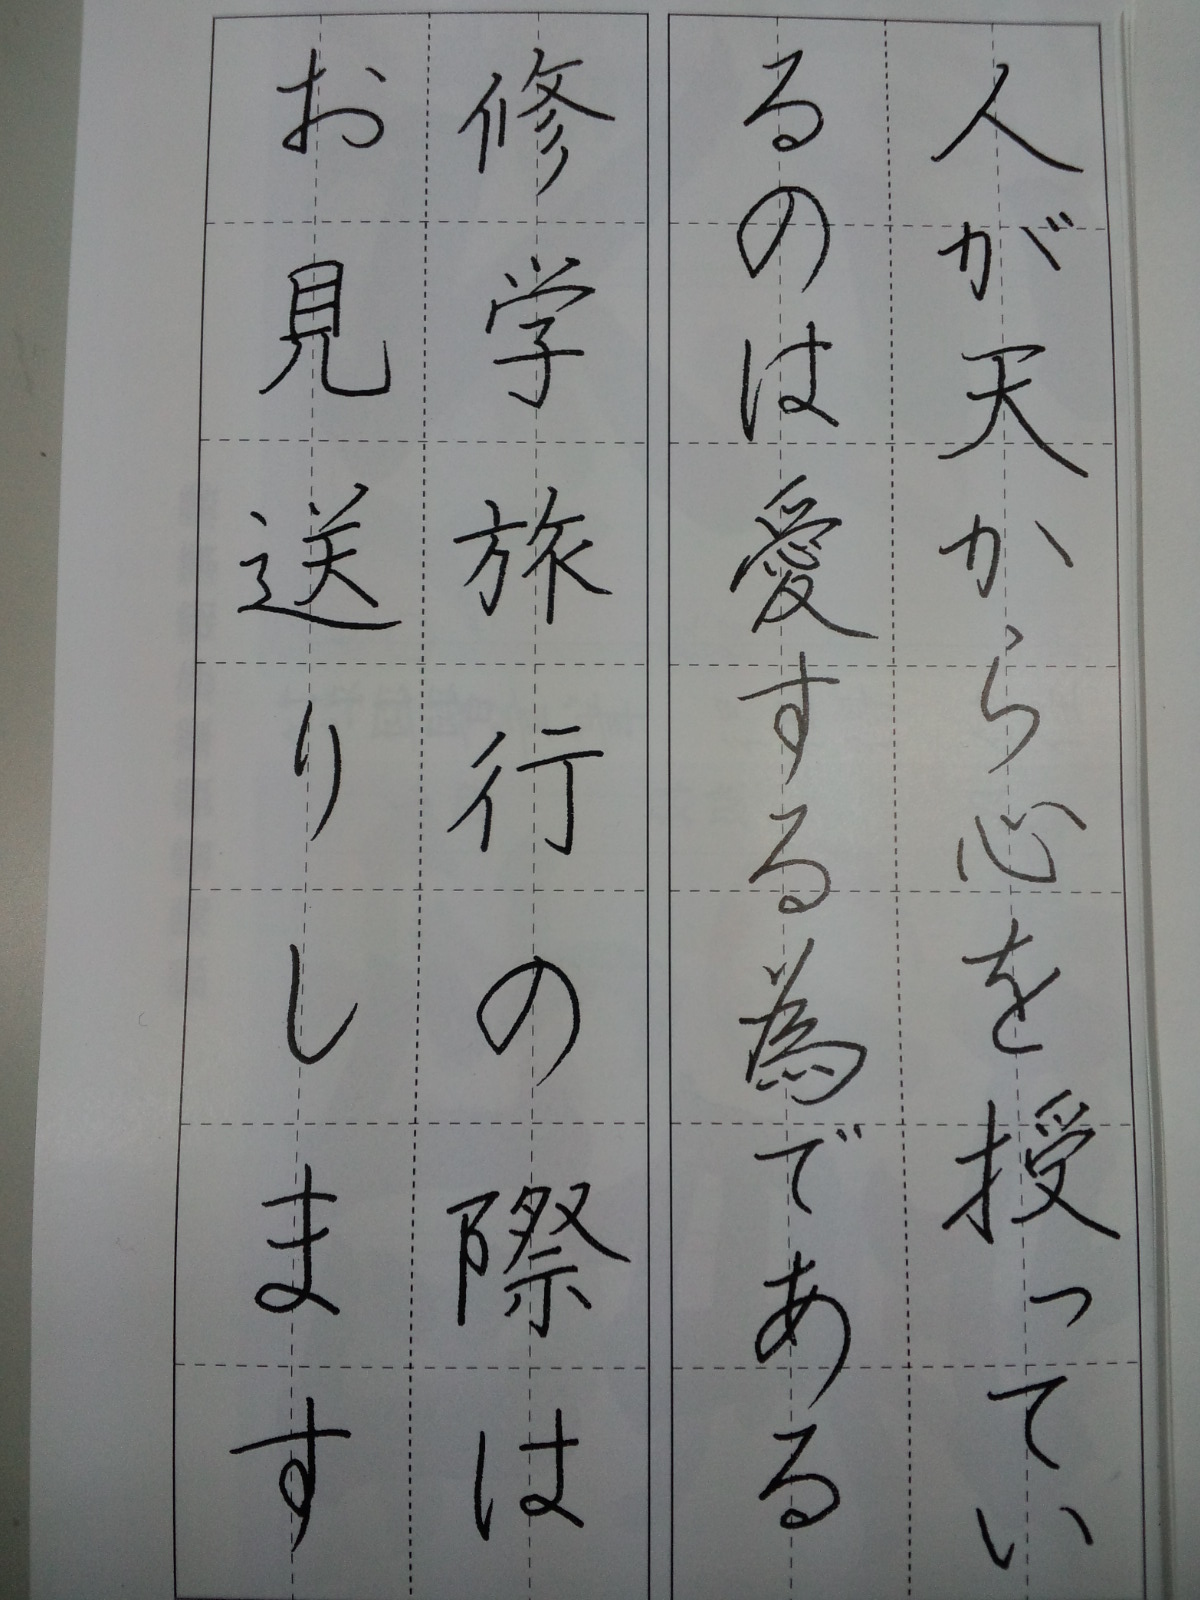 人が天から心を授ってい
るのは愛する為である
修学旅行の際は
お見送りします